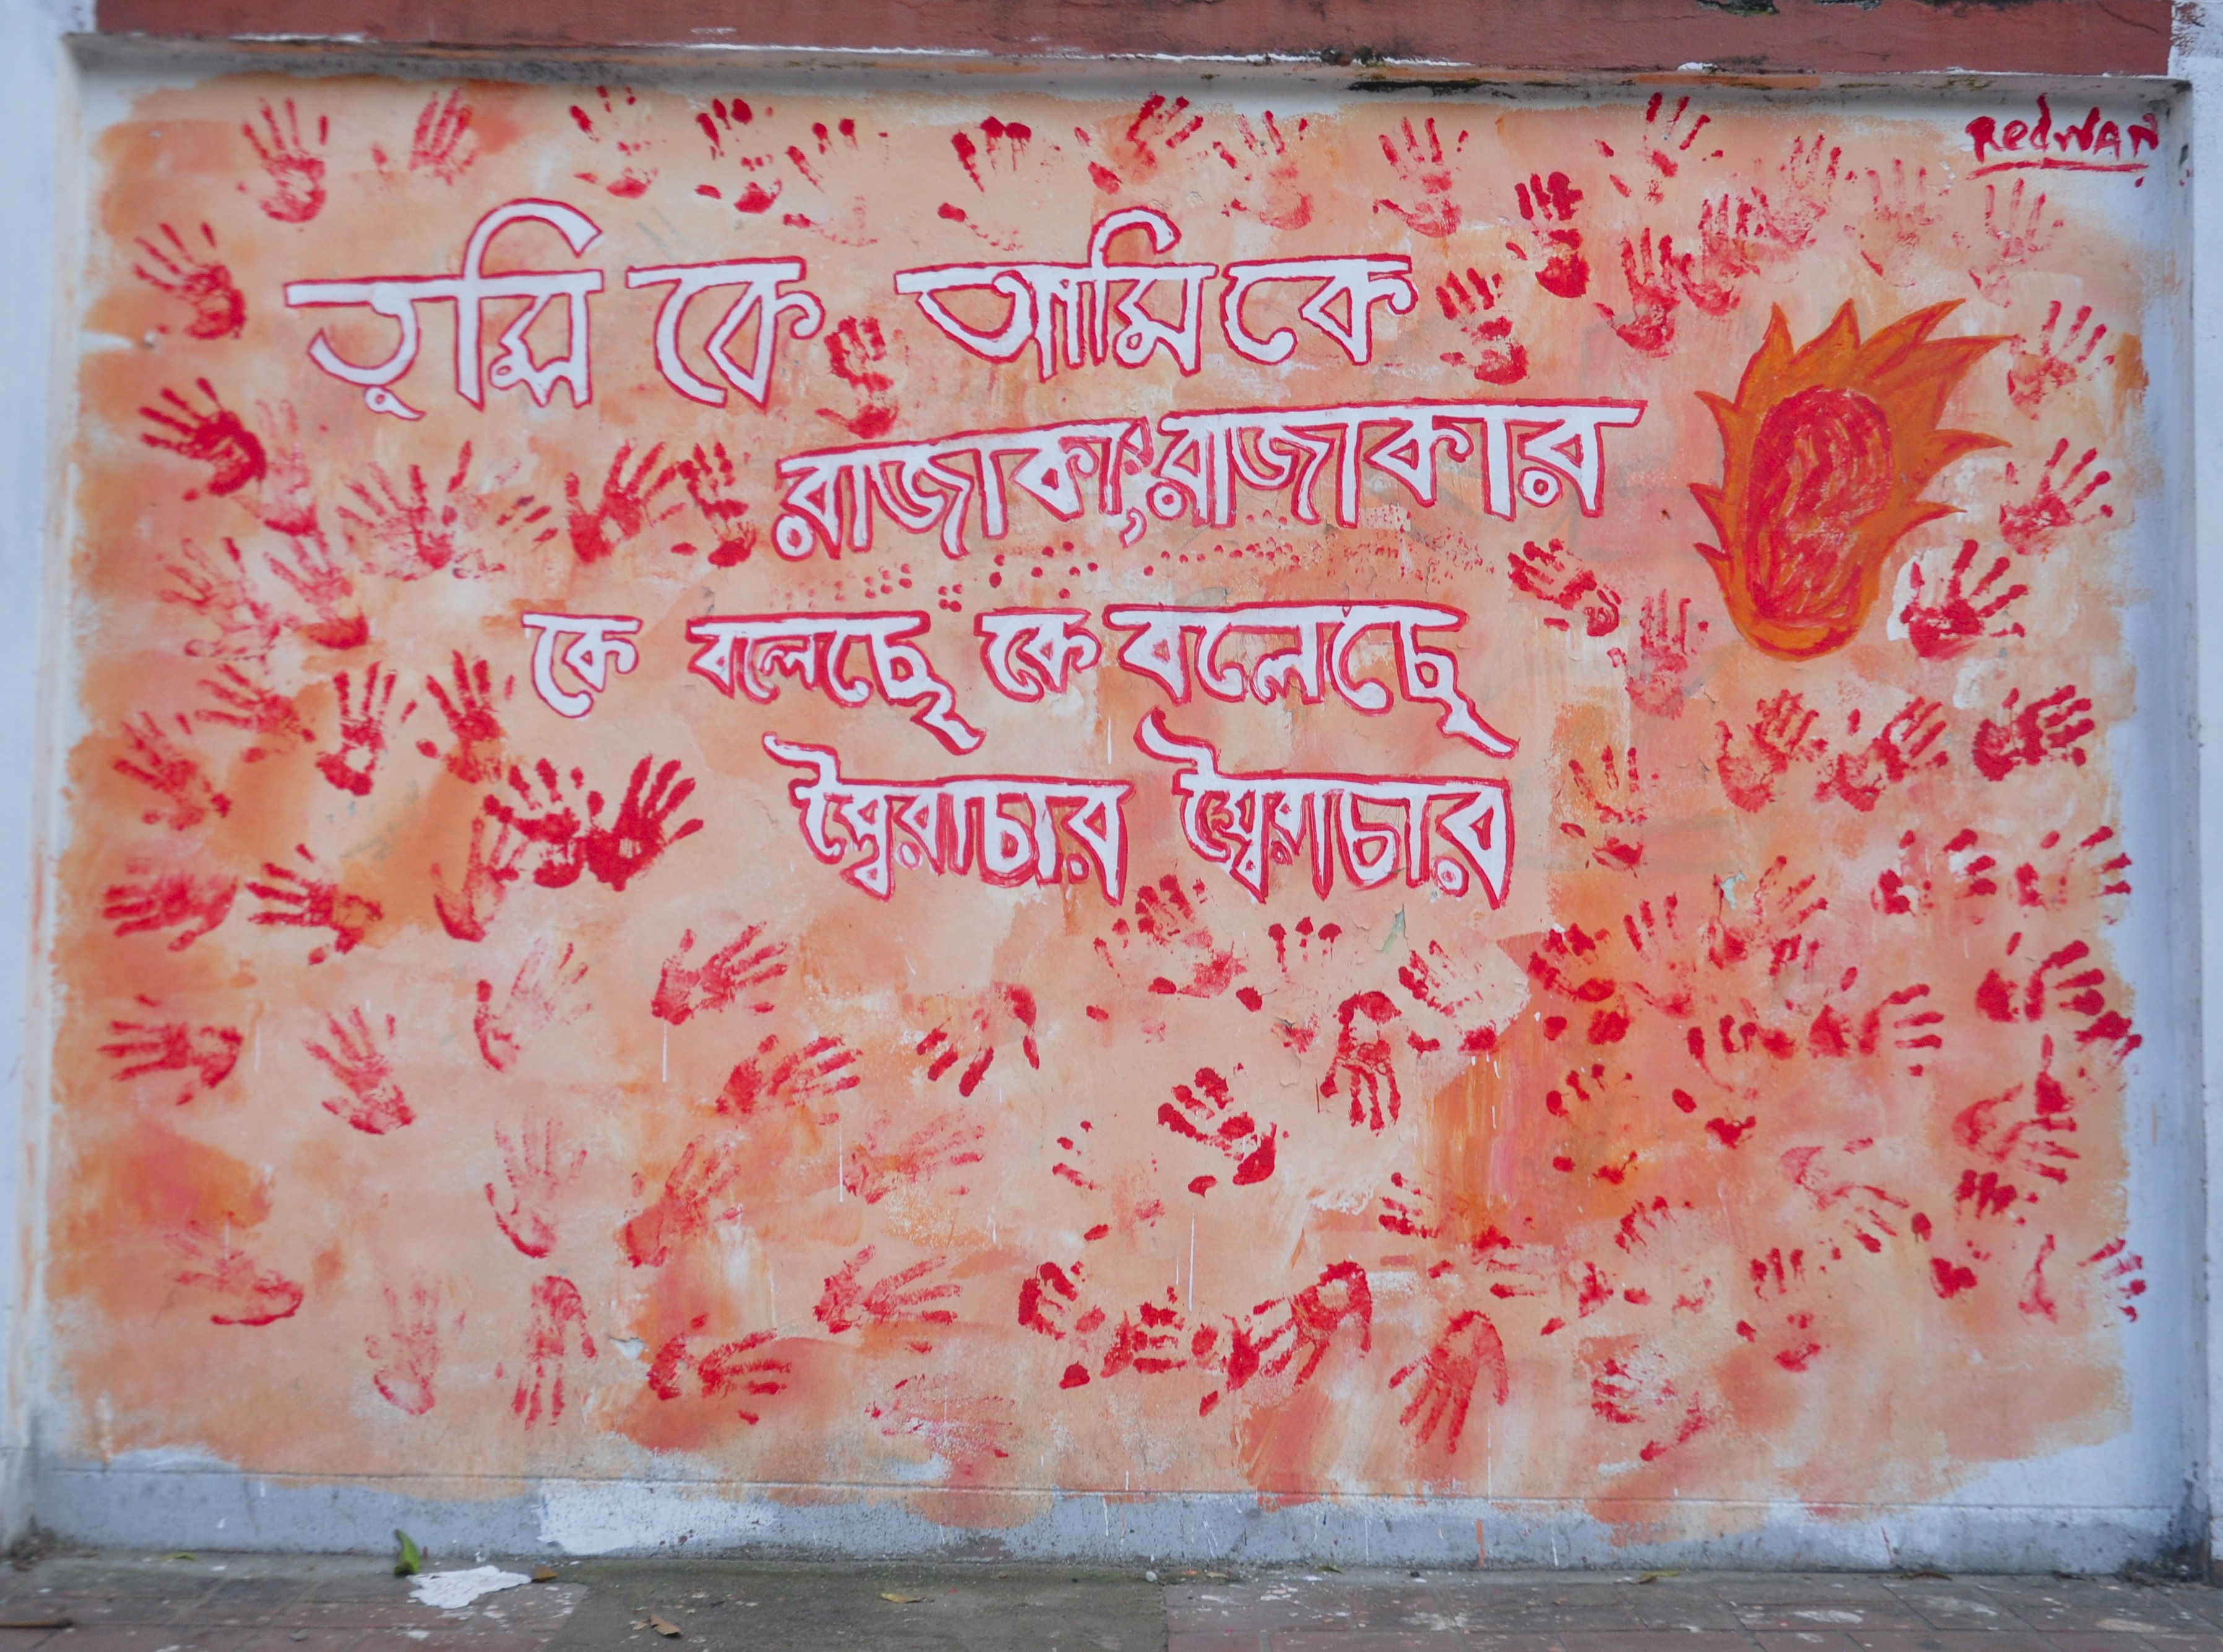 RedWAN
তুমি কে আমি কে
রাজাকার, রাজাকার
কে বলেছে কে বলেছে
স্বৈরাচার স্বৈরাচার